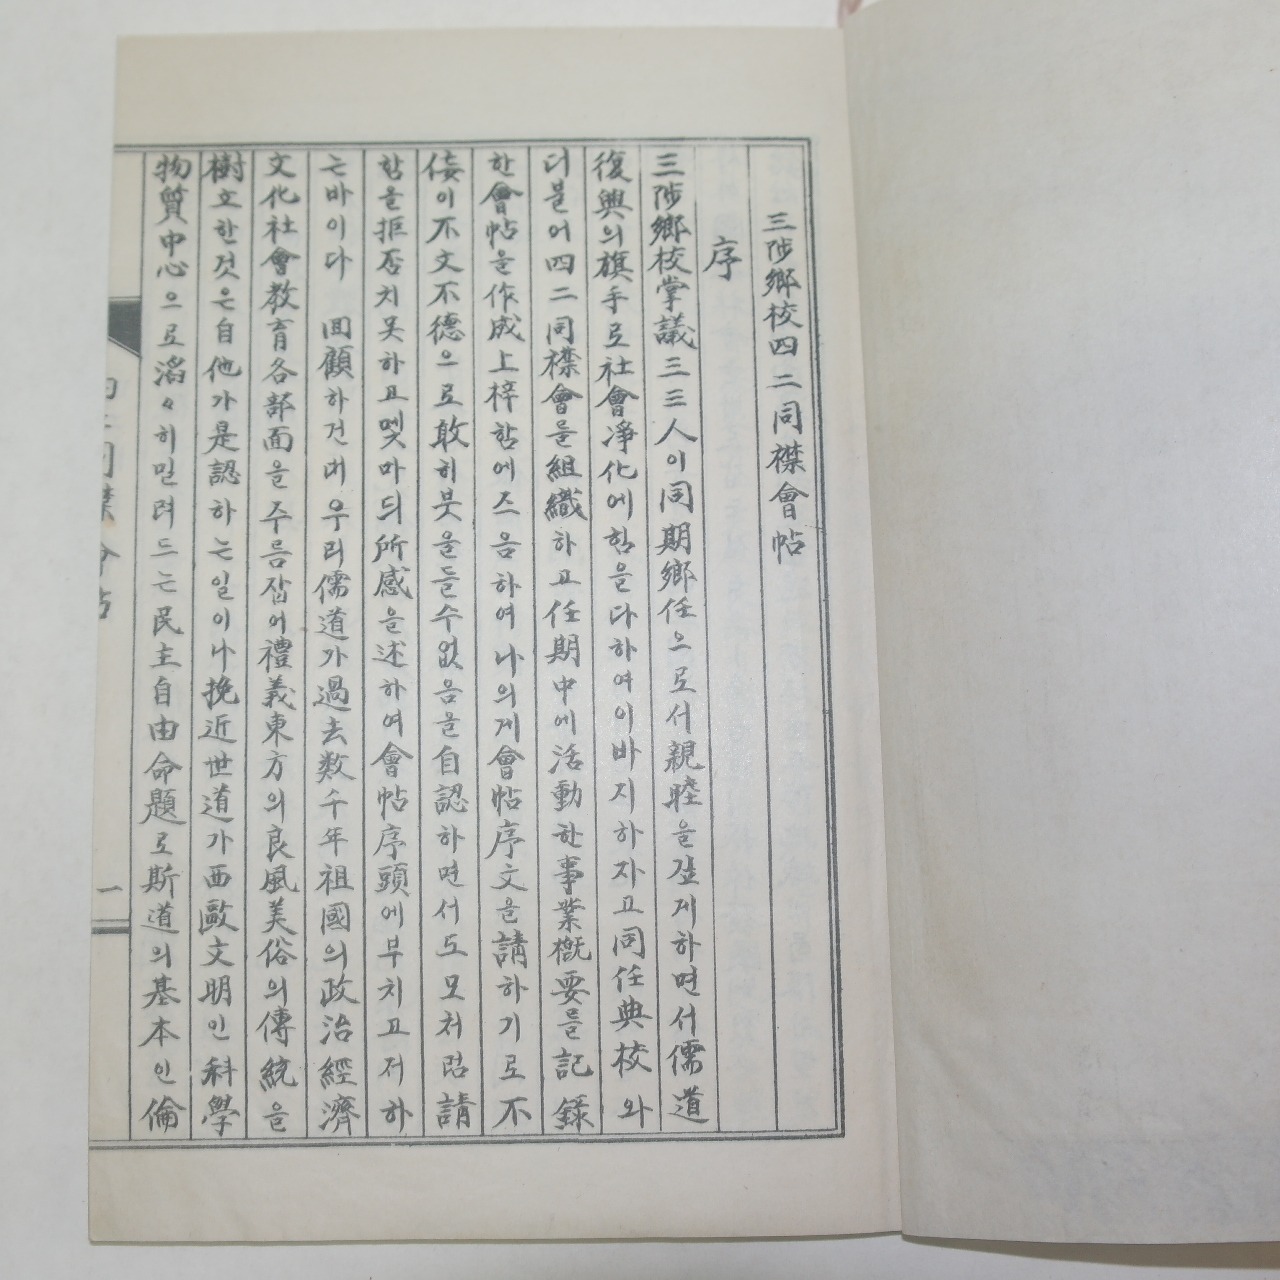 三陟鄕校四二同襟會帖
序
三陟鄕校掌議三三人이同期鄕任으로서親睦을깊게하면서儒道
復興의旗手로社會凈化에힘을다하여이바지하자고同任典校와
더불어四二同襟會를組織하고任期中에活動한事業槪要를記錄
한會帖을作成上梓함에즈음하여나의게會帖序文을請하기로不
侫이不文不德으로敢히붓을들수없음을自認하면서도모처럼請
함을拒否치못하고몇마듸所感을述하여會帖序頭에부치고저하
는바이다 回顧하건대우리儒道가過去数千年祖國의政治經濟
文化社會教育各部面을주름잡어禮義東方의良風美俗의傳統을
樹立한것은自他가是認하는일이나挽近世道가西歐文明인科學
物質中心으로滔々히밀려드는民主自由命題로斯道의基本인倫
四二同襟會帖
一